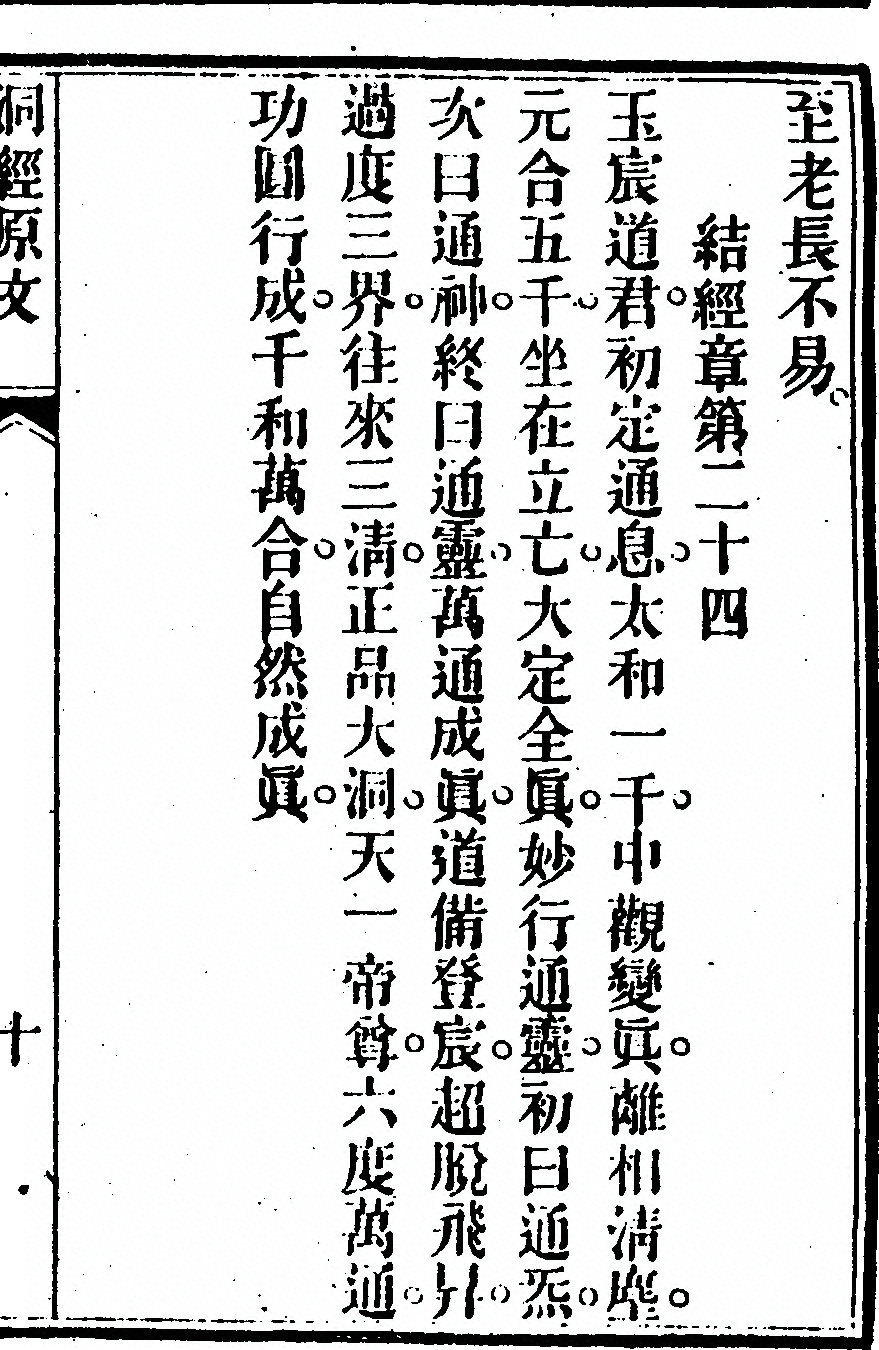 至老長不易。
結經章第二十四
玉宸道君。初定通息。太和一千。中觀變眞。離相淸塵。
元合五千。坐在立亡。大定全眞。妙行通靈。初曰通炁。
次曰通神。終曰通靈。萬通成眞。道備登宸。超脫飛昇。
過度三界。往來三淸。正品大洞。天一帝尊。六度萬通。
功圓行成。千和萬合。自然成眞。
洞經原文
十